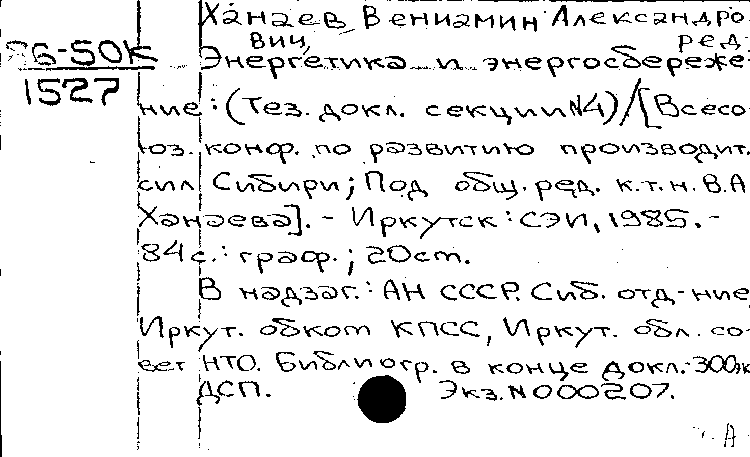 Ханаев Вениамин Александро
вич, ред.
86-50К
1527
Энергетика и энергосбереже-
ние: (Тез. докл. секции №4)/[Всесо
юз. конф. по развитию производит.
сил Сибири; Под общ. ред. к.т.н. В.А
Ханаева]. - Иркутск: СЭИ, 1985. -
84 с.: граф.; 20 см.
В надзаг.: АН СССР. Сиб. отд-ние,
Иркут. обком КПСС, Иркут. обл. со-
вет НТО. Библиогр. в конце докл. 300эк
ДСП. Экз. N000207.
А